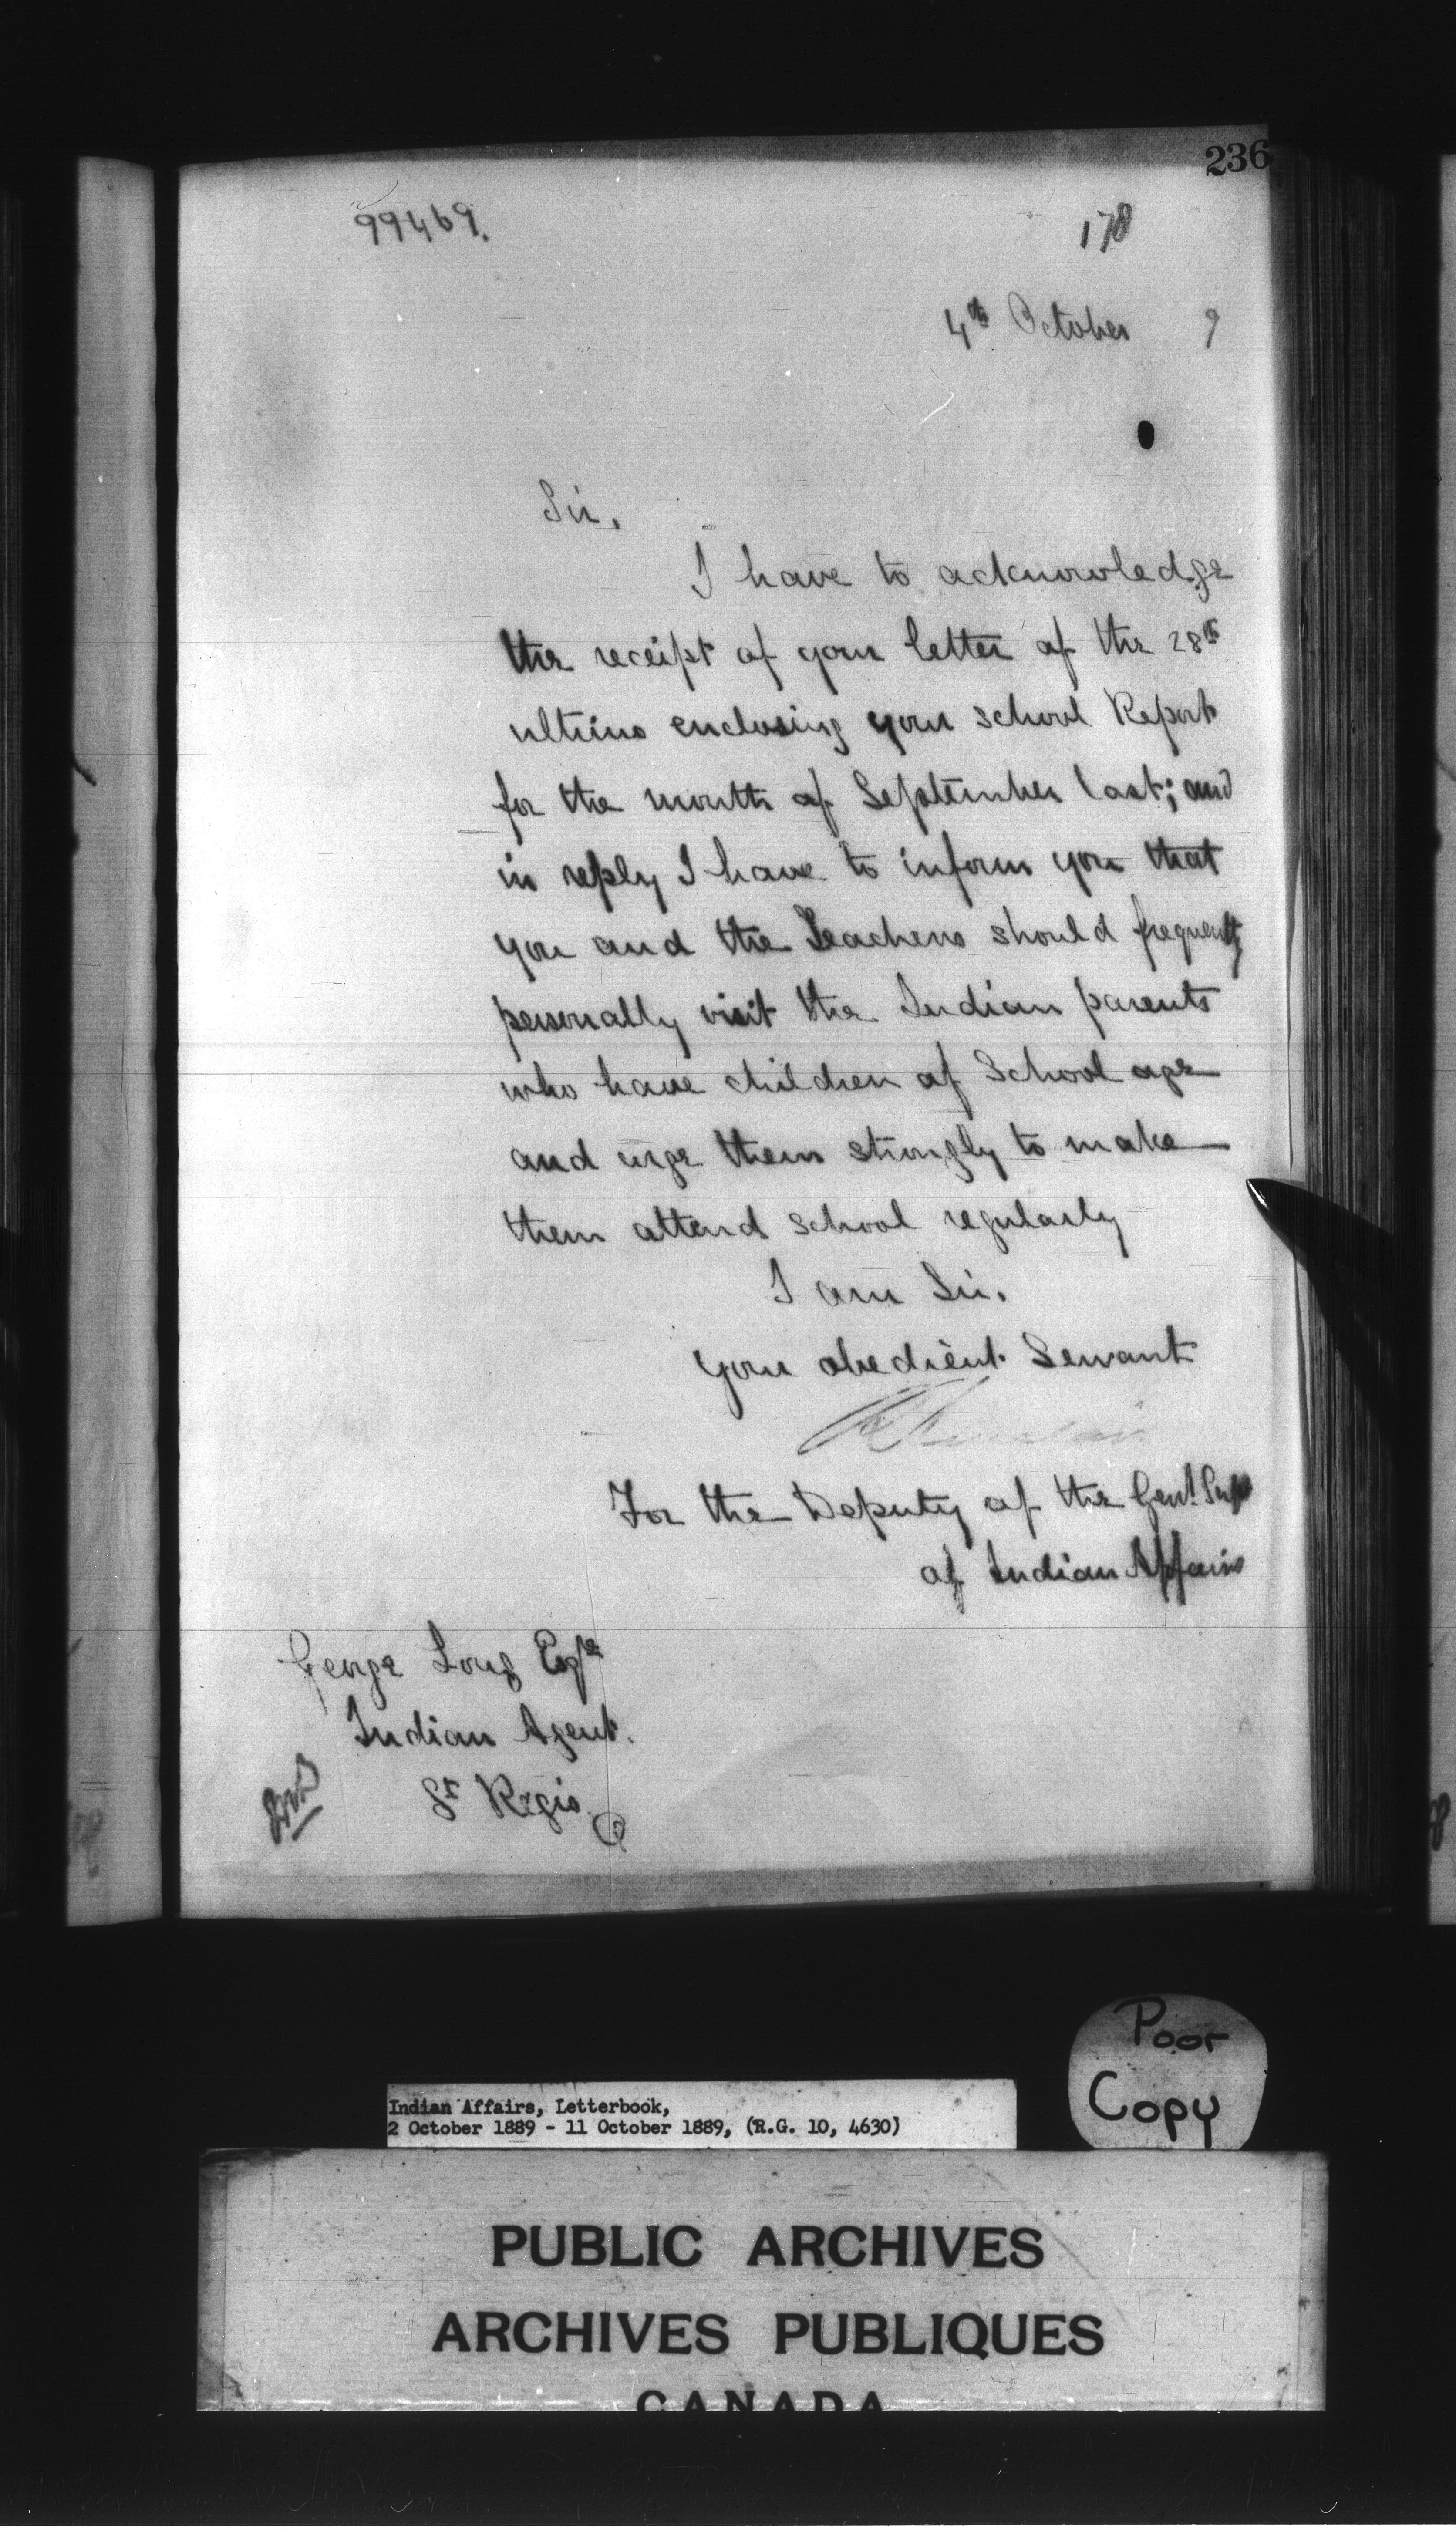 236
99469.
178
4th October 9
Sir,
I have to acknowledge
the receipt of your letter of the 28th
ultimo enclosing your school Report
for the month of September last; and
in reply I have to inform you that
you and the Teachers should frequently
personally visit the Indian parents
who have children of School age
and urge them strongly to make
them attend school regularly
I am Sir.
Your obedient Servant
For the Deputy of the Genl. Supt
of Indian Affairs
George Long Esqre
Indian Agent.
St Regis
Q
Poor
Copy
Indian Affairs, Letterbook,
2 October 1889 - 11 October 1889, (R.G. 10, 4630)
PUBLIC ARCHIVES
ARCHIVES PUBLIQUES
CANADA